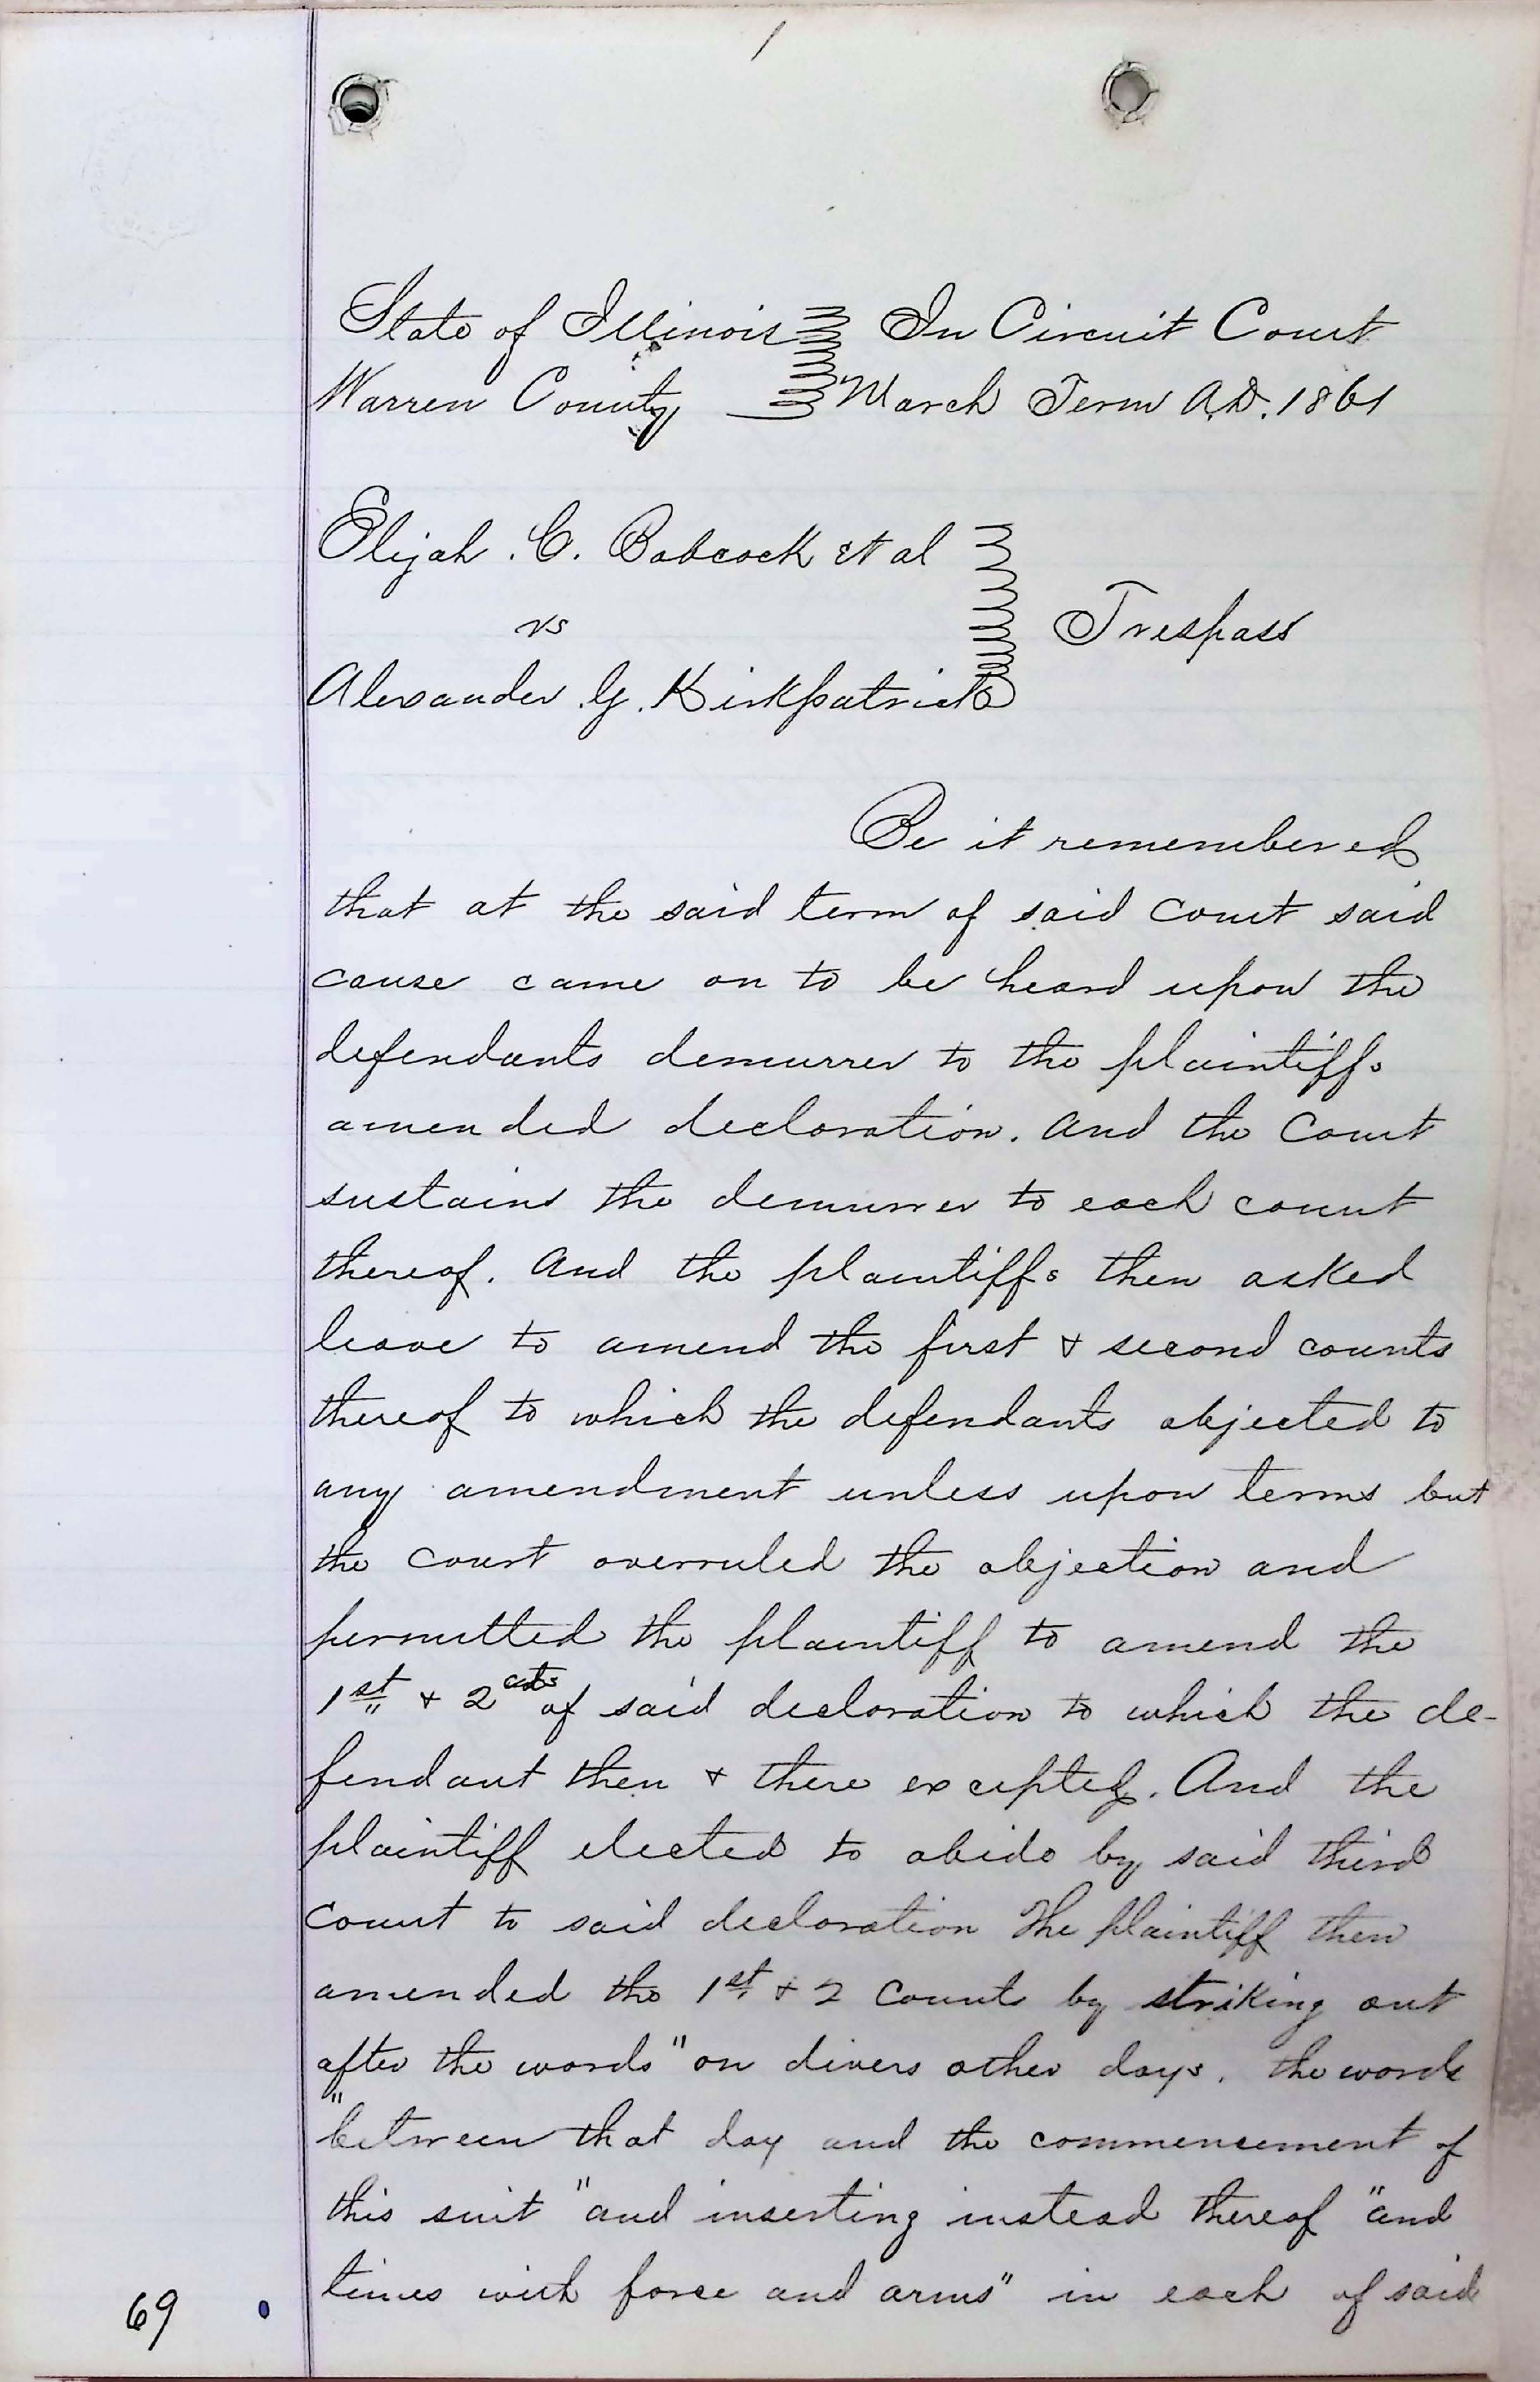 1
State of Illinois In Circuit Court
Warren County March Term A.D. 1861
Elijah. C. Babcock et al
vs
Trespass
Alexander. G. Kirkpatrick
Be it remembered
that at the said term of said Court said
cause came on to be heard upon the
defendants demurrer to the plaintiffs
amended declaration. And the Court
sustains the demurrer to each count
thereof. And the plaintiffs then asked
leave to amend the first & second counts
thereof to which the defendants objected to
any amendment unless upon terms but
the court overruled the objection and
permitted the plaintiff to amend the
1st & 2 cts of said declaration to which the de-
fendant then & there excepted. And the
plaintiff elected to abide by said third
Count to said declaration The plaintiff then
amended the 1st & 2 Counts by striking out
after the words "on divers other days. the words
"between that day and the commencement of
this suit" and inserting instead thereof "and
times with force and arms" in each of said
69